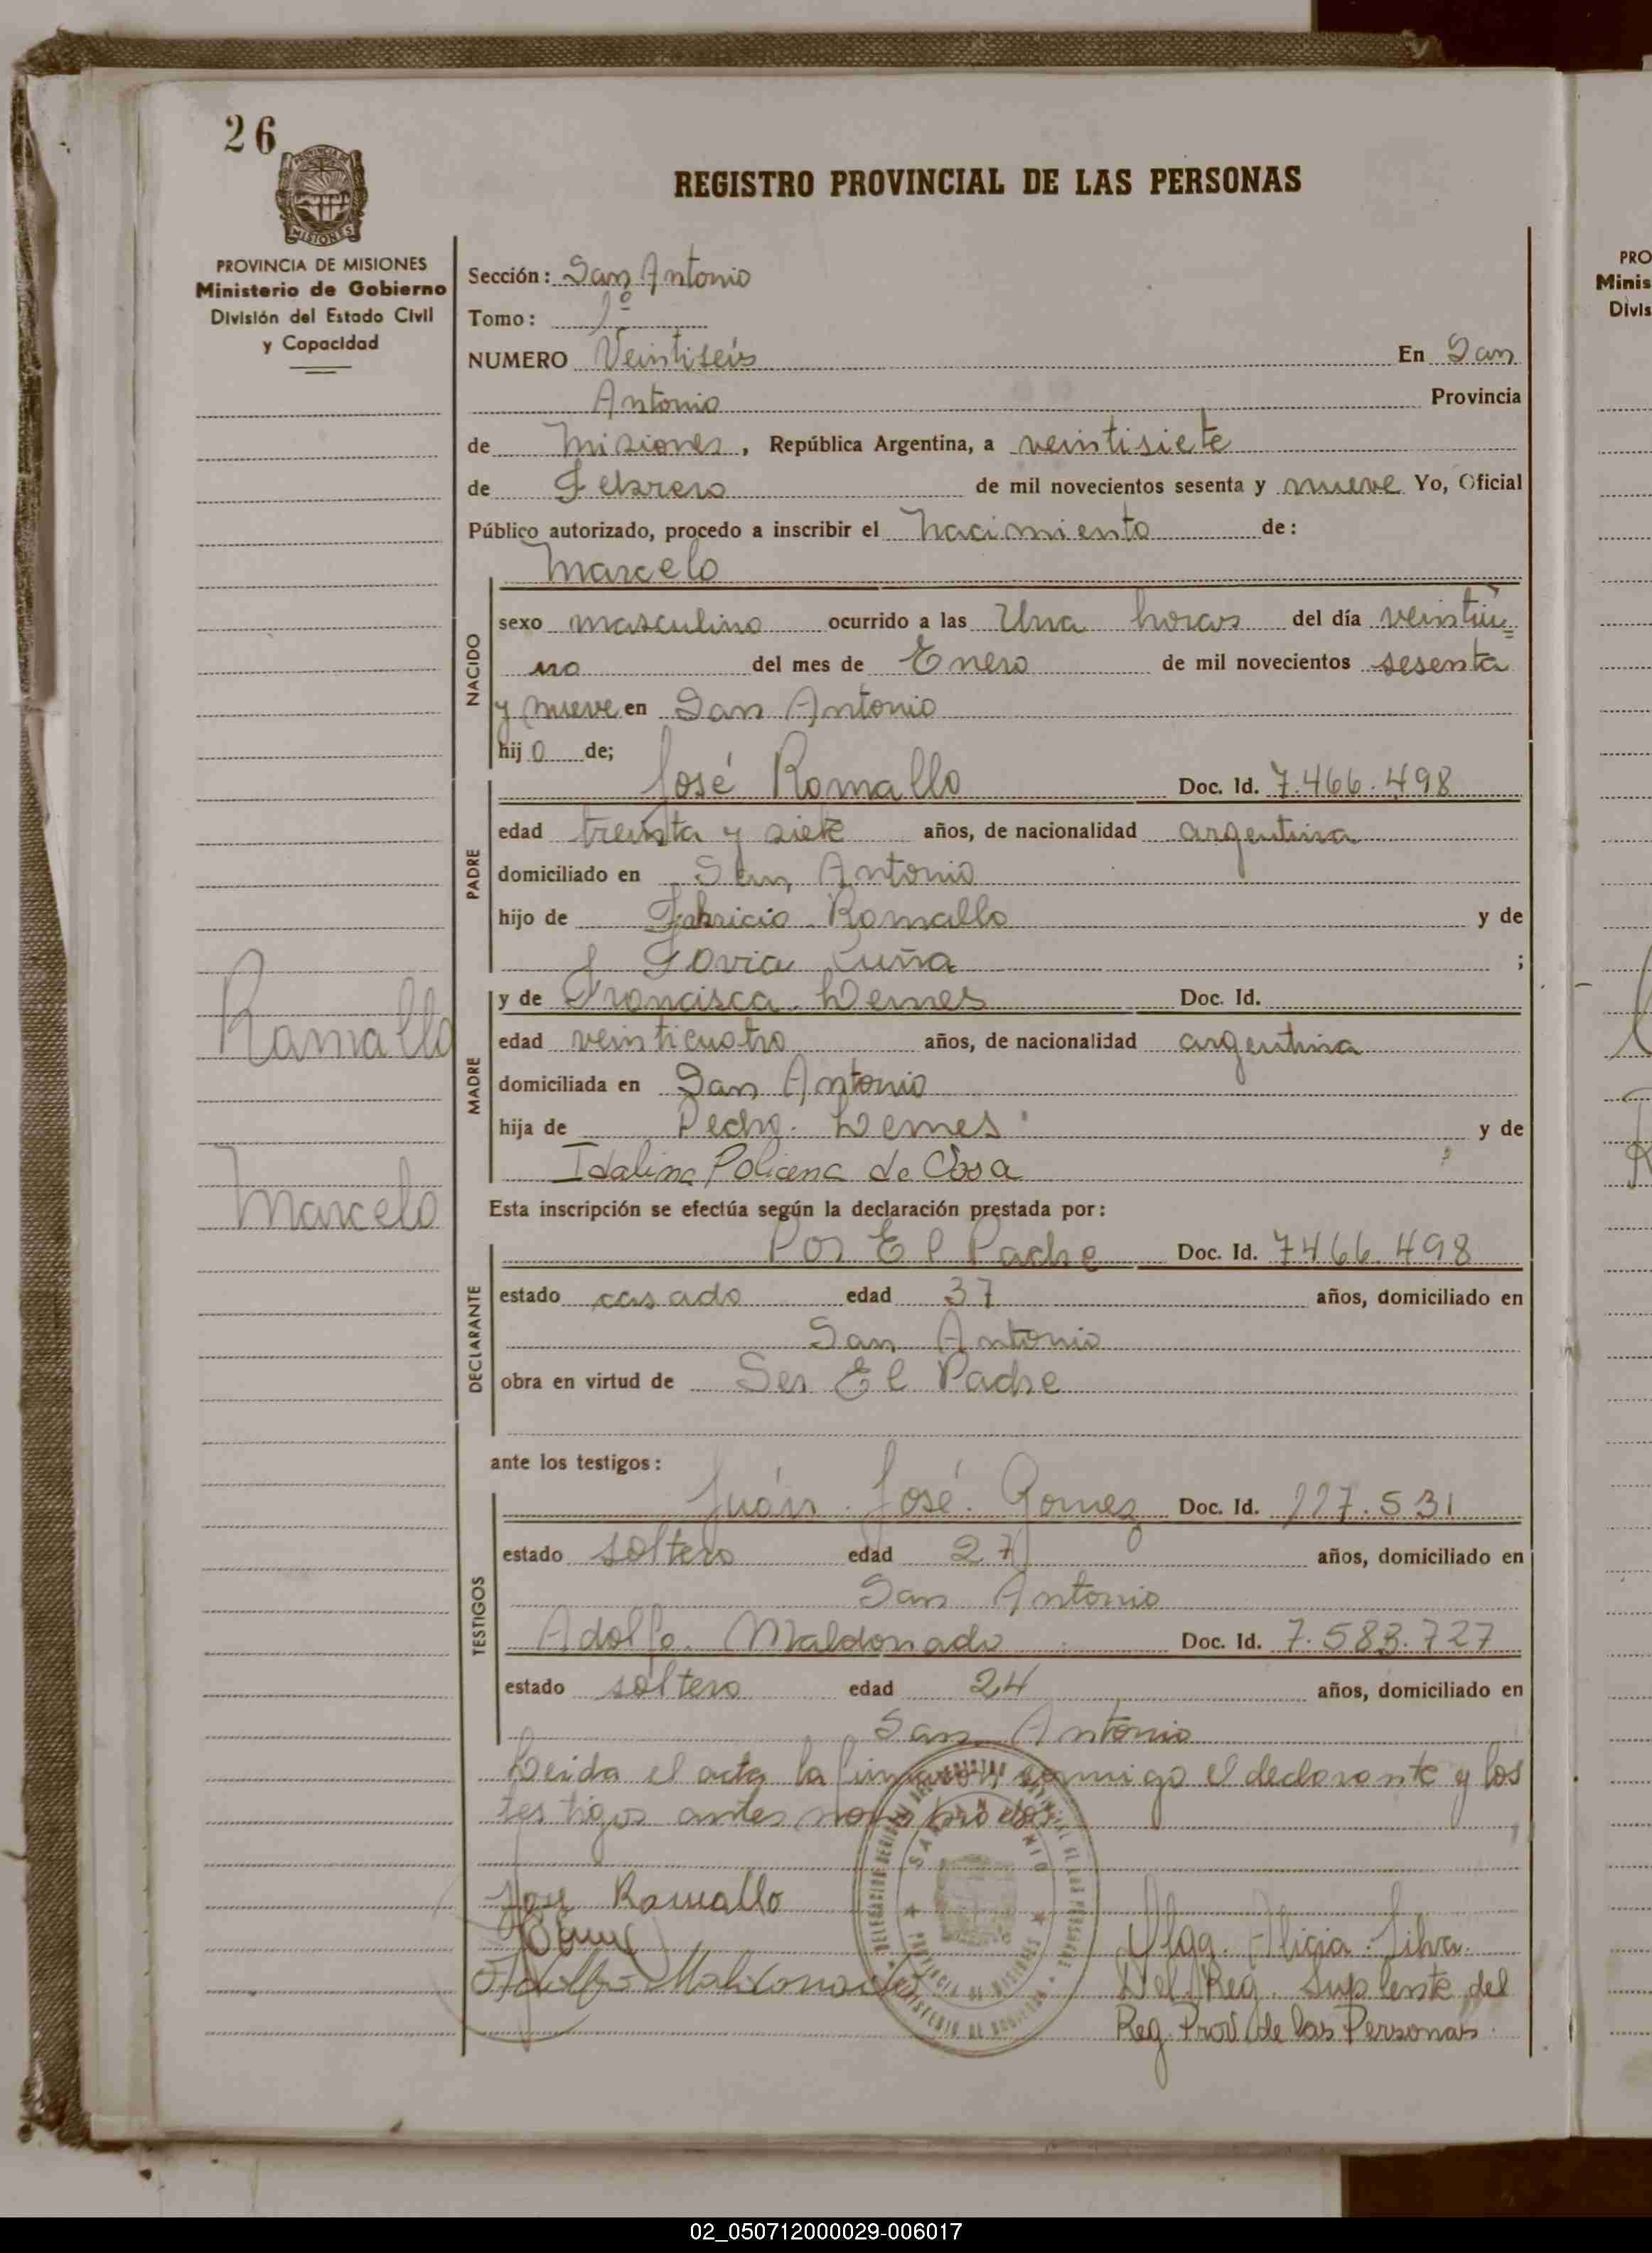 26
REGISTRO PROVINCIAL DE LAS PERSONAS
PROVINCIA DE MISIONES
Ministerio de Gobierno
División del Estado Civil
y Capacidad
Sección: San Antonio
Tomo: 1º
NUMERO Veintiseis En San
Antonio Provincia
de Misiones, República Argentina, a veintisiete
de Febrero de mil novecientos sesenta y nueve Yo, Oficial
Público autorizado, procedo a inscribir el Nacimiento de:
Marcelo
NACIDO
sexo masculino ocurrido a las Una horas del día veintiu=
no del mes de Enero de mil novecientos sesenta
y nueve en San Antonio
hijo de;
PADRE
José Ramallo Doc. Id. 7.466.498
edad treinta y siete años, de nacionalidad argentina
domiciliado en San Antonio
hijo de Fabricio Ramallo y de
;
MADRE
y de Francisca Lemes Doc. Id.
edad veinticuatro años, de nacionalidad argentina
domiciliada en San Antonio
hija de Pedro Lemes y de
Idalina de
Ramallo
Marcelo
Esta inscripción se efectúa según la declaración prestada por:
DECLARANTE
Por El Padre Doc. Id. 7466.498
estado casado edad 37 años, domiciliado en
San Antonio
obra en virtud de Ser El Padre
ante los testigos:
TESTIGOS
Juán José Gomez Doc. Id. 117.531
estado soltero edad 27 años, domiciliado en
San Antonio
Adolfo Maldonado Doc. Id. 7.583.727
estado soltero edad 24 años, domiciliado en
San Antonio
Leida el acta la firmaron conmigo el declarante y los
testigos antes nombrados
José Ramallo
Adolfo Maldonado
Alicia Silva
Del. Reg. Suplente del
Reg. Prov. de las Personas.
PRO
Minis
Divis
02_050712000029-006017